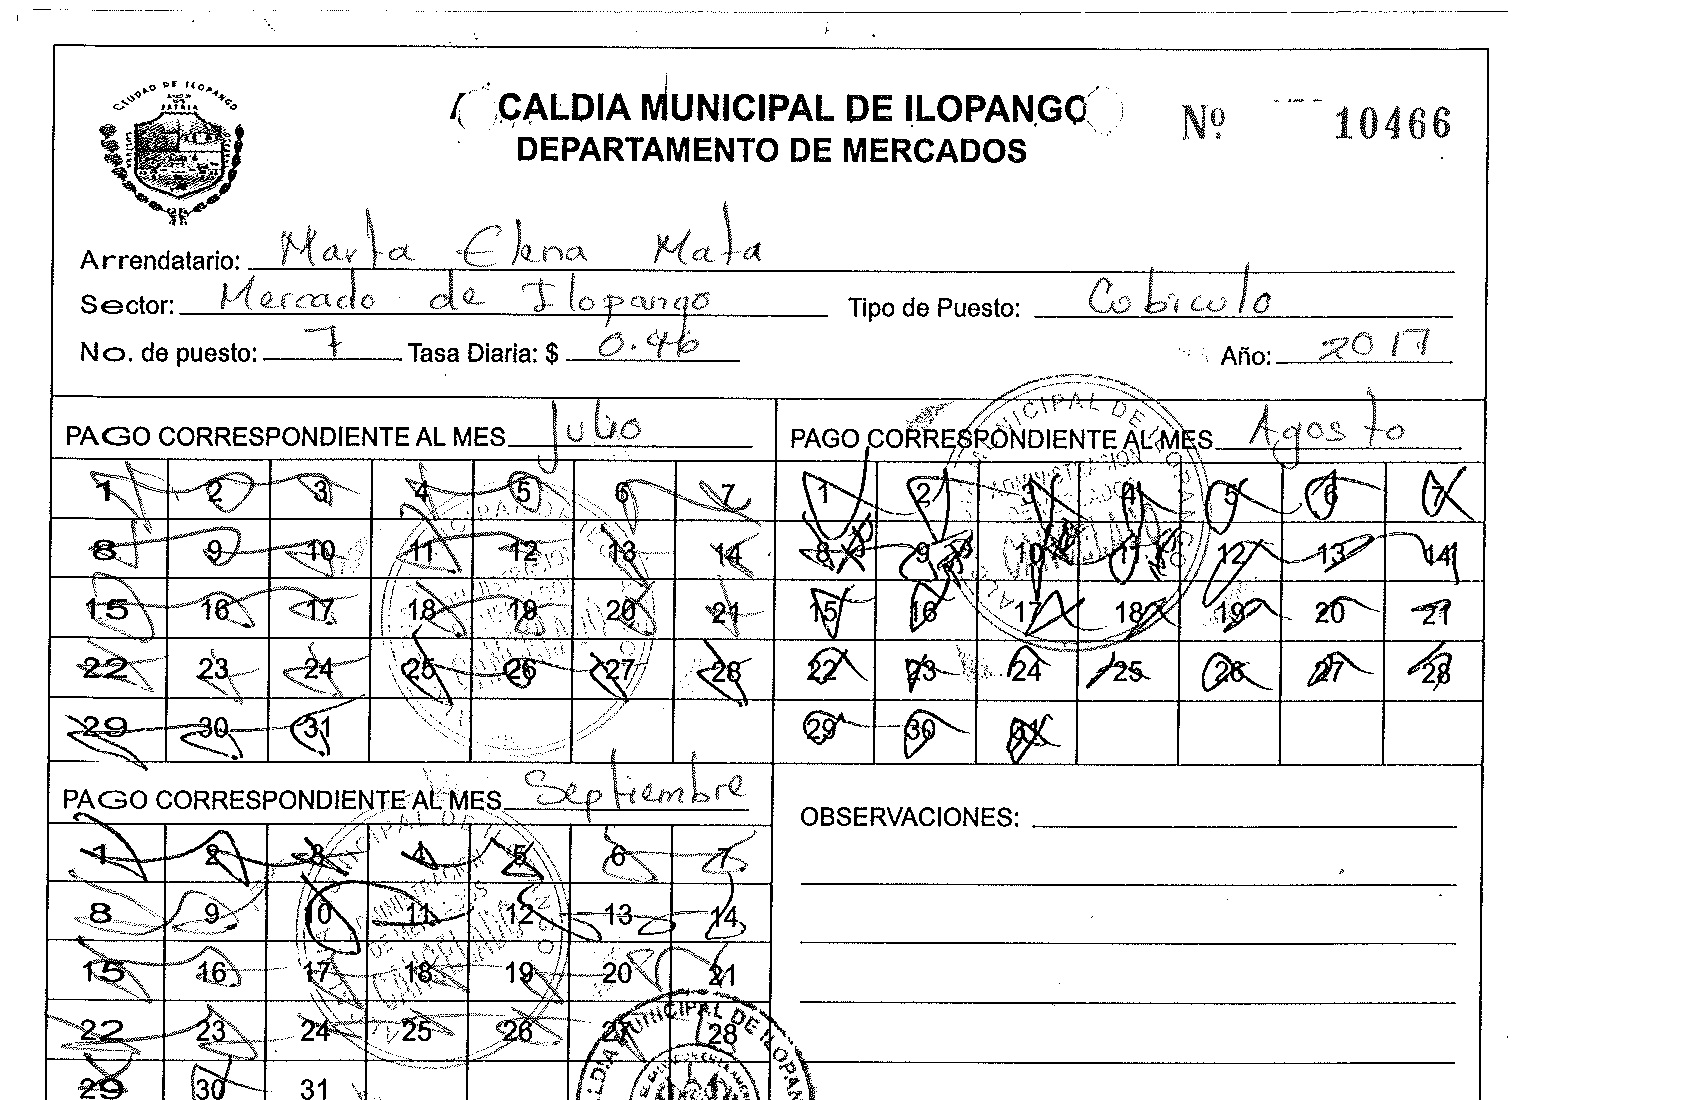 CIUDAD DE ILOPANGO
PATRIA
CALDIA MUNICIPAL DE ILOPANGO
Nº 10466
DEPARTAMENTO DE MERCADOS
Arrendatario: Marta Elena Mata
Sector: Mercado de Ilopango Tipo de Puesto: Cobiculo
No. de puesto: 7 Tasa Diaria: $ 0.46 Año: 2017
PAGO CORRESPONDIENTE AL MES Julio
1 2 3 4 5 6 7
8 9 10 11 12 13 14
15 16 17 18 19 20 21
22 23 24 25 26 27 28
29 30 31
PAGO CORRESPONDIENTE AL MES Agosto
1 2 3 4 5 6 7
8 9 10 11 12 13 14
15 16 17 18 19 20 21
22 23 24 25 26 27 28
29 30 31
PAGO CORRESPONDIENTE AL MES Septiembre
1 2 3 4 5 6 7
8 9 10 11 12 13 14
15 16 17 18 19 20 21
22 23 24 25 26 27 28
29 30 31
OBSERVACIONES:
MUNICIPAL DE ILOPANGO